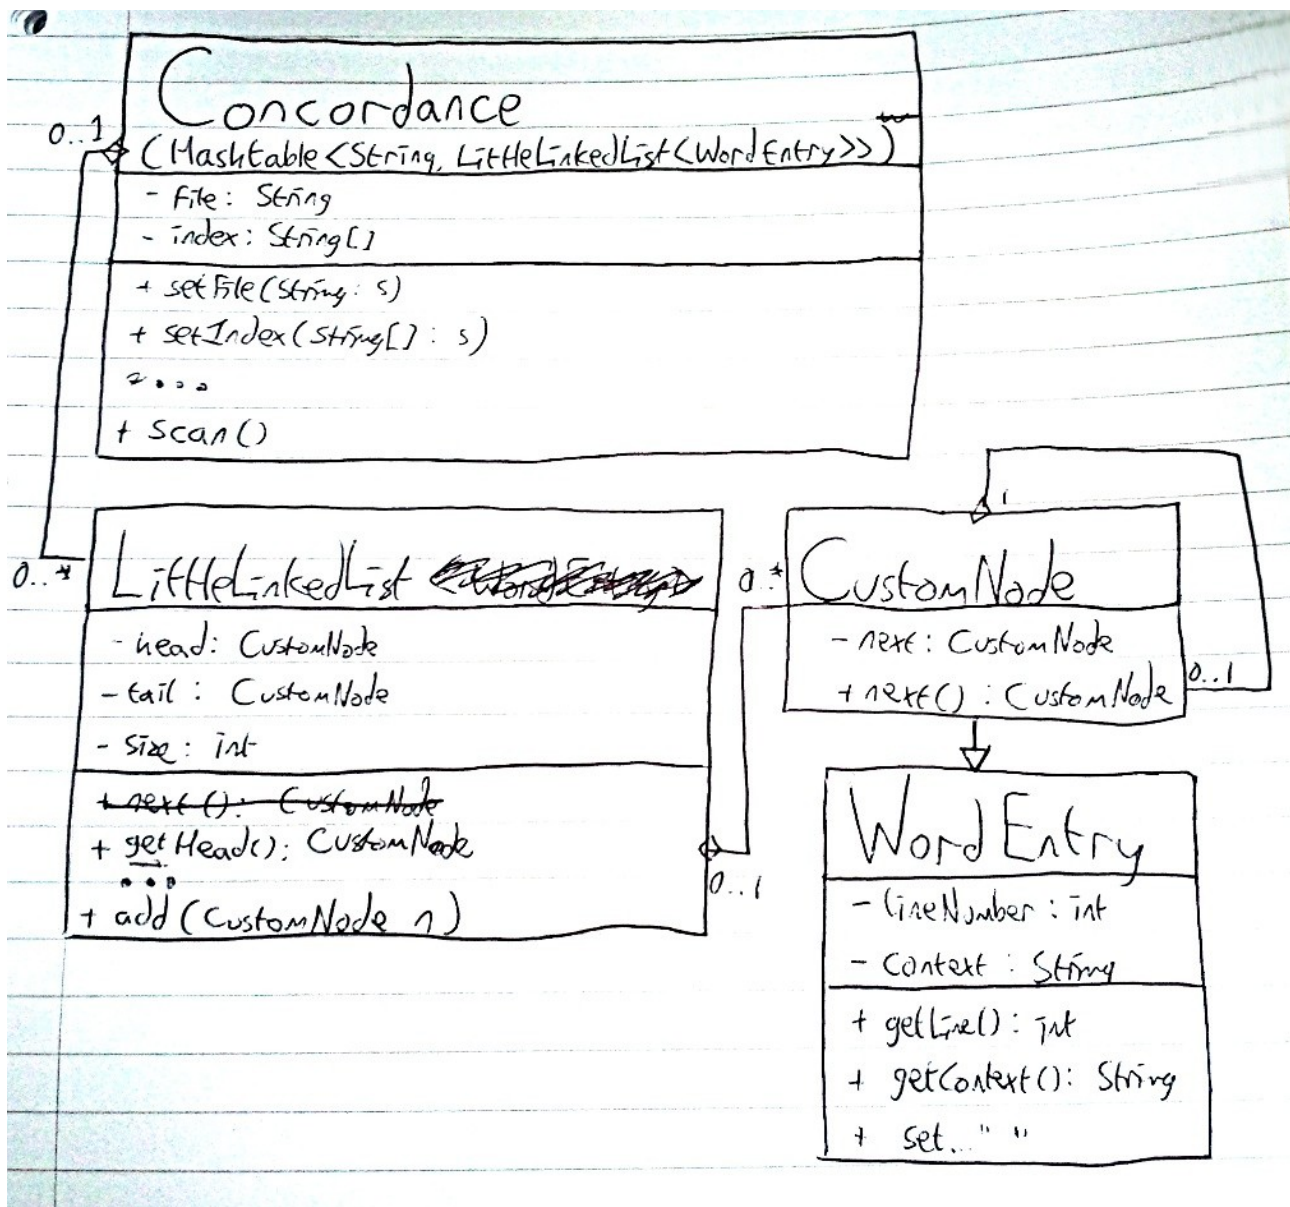 Concordance
0..1
(Hashtable<String, LittleLinkedList<WordEntry>>)
- file: String
- index: String[]
+ setFile(String: s)
+ setIndex(String[] : s)
....
+ scan()
0..*
LittleLinkedList
- head: CustomNode
- tail : CustomNode
- size: int
+ next(): CustomNode
+ getHead(): CustomNode
...
+ add(CustomNode n)
0..1
0..*
1
CustomNode
- next: CustomNode
+ next() : CustomNode
0..1
WordEntry
- lineNumber : int
- context : String
+ getLine() : int
+ getContext(): String
+ set... " "